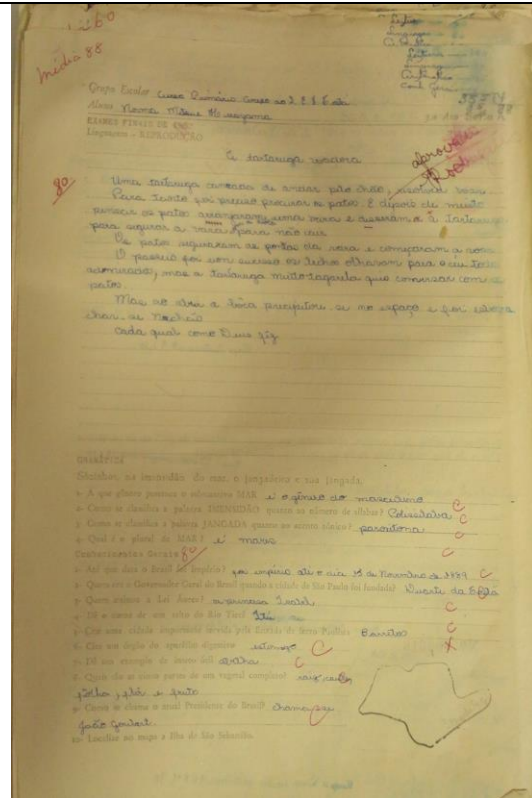 média 88
Grupo Escolar Curso Primário anexo ao I. E. E.
Aluna Norma Mitsue
EXAMES FINAIS DE
Linguagem - REPRODUÇÃO
aprovada
A tartaruga voadora
80
Uma tartaruga cansada de andar pelo chão, resolveu voar.
Para tanto foi preciso procurar os patos. E depois de muito
pensar os patos arranjaram uma vara e disseram a tartaruga
para segurar a vara para não cair
Os patos seguraram as pontas da vara e começaram a voar
O passeio foi um sucesso os bichos olharam para o céu todos
admirados, mas a tartaruga muito tagarela quis conversar com os
patos.
Mas ao abrir a boca precipitou-se no espaço e foi
char-se
cada qual como Deus fez
GRAMÁTICA
Sòzinhos, na imensidão do mar, o jangadeiro e sua jangada.
1- A que gênero pertence o substantivo MAR é o gênero do masculino C
2- Como se classifica a palavra IMENSIDÃO quanto ao número de sílabas? Polissílaba C
3- Como se classifica a palavra JANGADA quanto ao acento tônico? paroxítona C
4- Qual é o plural de MAR? é mares C
Conhecimentos Gerais 80
1- Até que data o Brasil foi Império? foi império até o dia 15 de Novembro de 1889 C
2- Quem era o Governador Geral do Brasil quando a cidade de São Paulo foi fundada? Duarte da Costa C
3- Quem assinou a Lei Áurea? a princesa Isabel C
4- Dê o nome de um salto do Rio Tietê C
5- Cite uma cidade importante servida pela Estrada de Ferro Paulista X
6- Cite um órgão do aparelho digestivo estomago C
7- Dê um exemplo de inseto útil abelha C
8- Quais são as cinco partes de um vegetal completo? raiz caule
folha, flô e fruto
9- Como se chama o atual Presidente do Brasil? chama-se
João Goulart.
10- Localize no mapa a Ilha de São Sebastião.